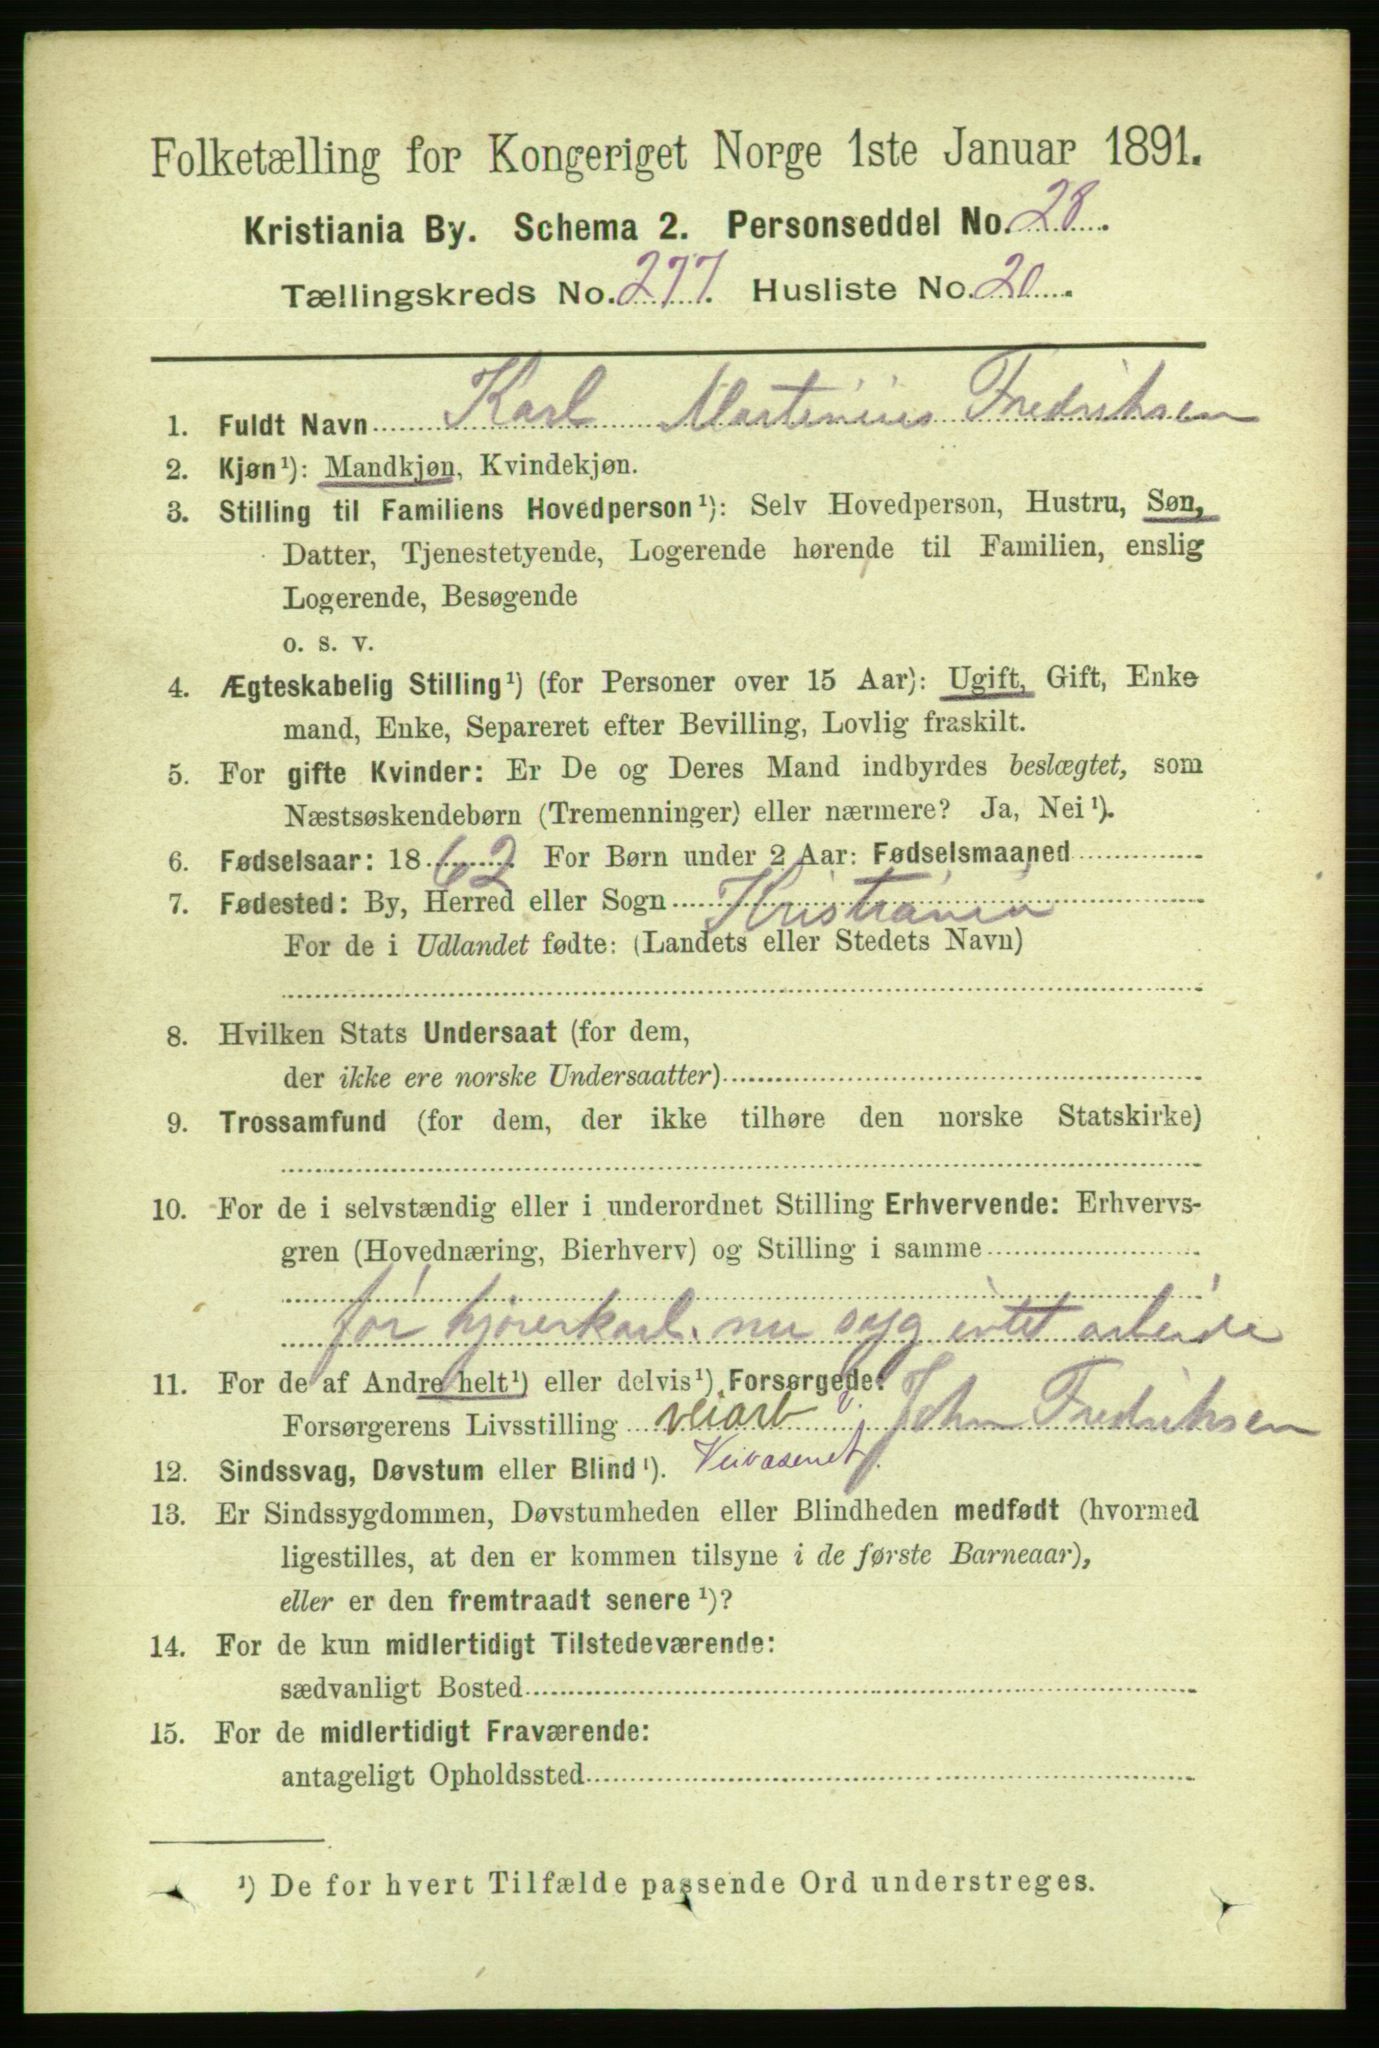 Folketælling for Kongeriget Norge 1ste Januar 1891.
Kristiania By. Schema 2. Personseddel No. 28.
Tællingskreds No. 277. Husliste No. 20.
1. Fuldt Navn Karl Martinius Fredriksen
2. Kjøn¹): Mandkjøn, Kvindekjøn.
3. Stilling til Familiens Hovedperson¹): Selv Hovedperson, Hustru, Søn,
Datter, Tjenestetyende, Logerende hørende til Familien, enslig
Logerende, Besøgende
o. s. v.
4. Ægteskabelig Stilling¹) (for Personer over 15 Aar): Ugift, Gift, Enke
mand, Enke, Separeret efter Bevilling, Lovlig fraskilt.
5. For gifte Kvinder: Er De og Deres Mand indbyrdes beslægtet, som
Næstsøskendebørn (Tremenninger) eller nærmere? Ja, Nei¹).
6. Fødselsaar: 1862. For Børn under 2 Aar: Fødselsmaaned
7. Fødested: By, Herred eller Sogn Kristiania
For de i Udlandet fødte: (Landets eller Stedets Navn)
8. Hvilken Stats Undersaat (for dem,
der ikke ere norske Undersaatter)
9. Trossamfund (for dem, der ikke tilhøre den norske Statskirke)
10. For de i selvstændig eller i underordnet Stilling Erhvervende: Erhvervs-
gren (Hovednæring, Bierhverv) og Stilling i samme
før kjørerkarl. nu syg intet arbeide
11. For de af Andre helt¹) eller delvis¹) Forsørgede:
Forsørgerens Livsstilling veiarb v. John Fredriksen
Veivæsenet.
12. Sindssvag, Døvstum eller Blind¹).
13. Er Sindssygdommen, Døvstumheden eller Blindheden medfødt (hvormed
ligestilles, at den er kommen tilsyne i de første Barneaar),
eller er den fremtraadt senere¹)?
14. For de kun midlertidigt Tilstedeværende:
sædvanligt Bosted
15. For de midlertidigt Fraværende:
antageligt Opholdssted
¹) De for hvert Tilfælde passende Ord understreges.